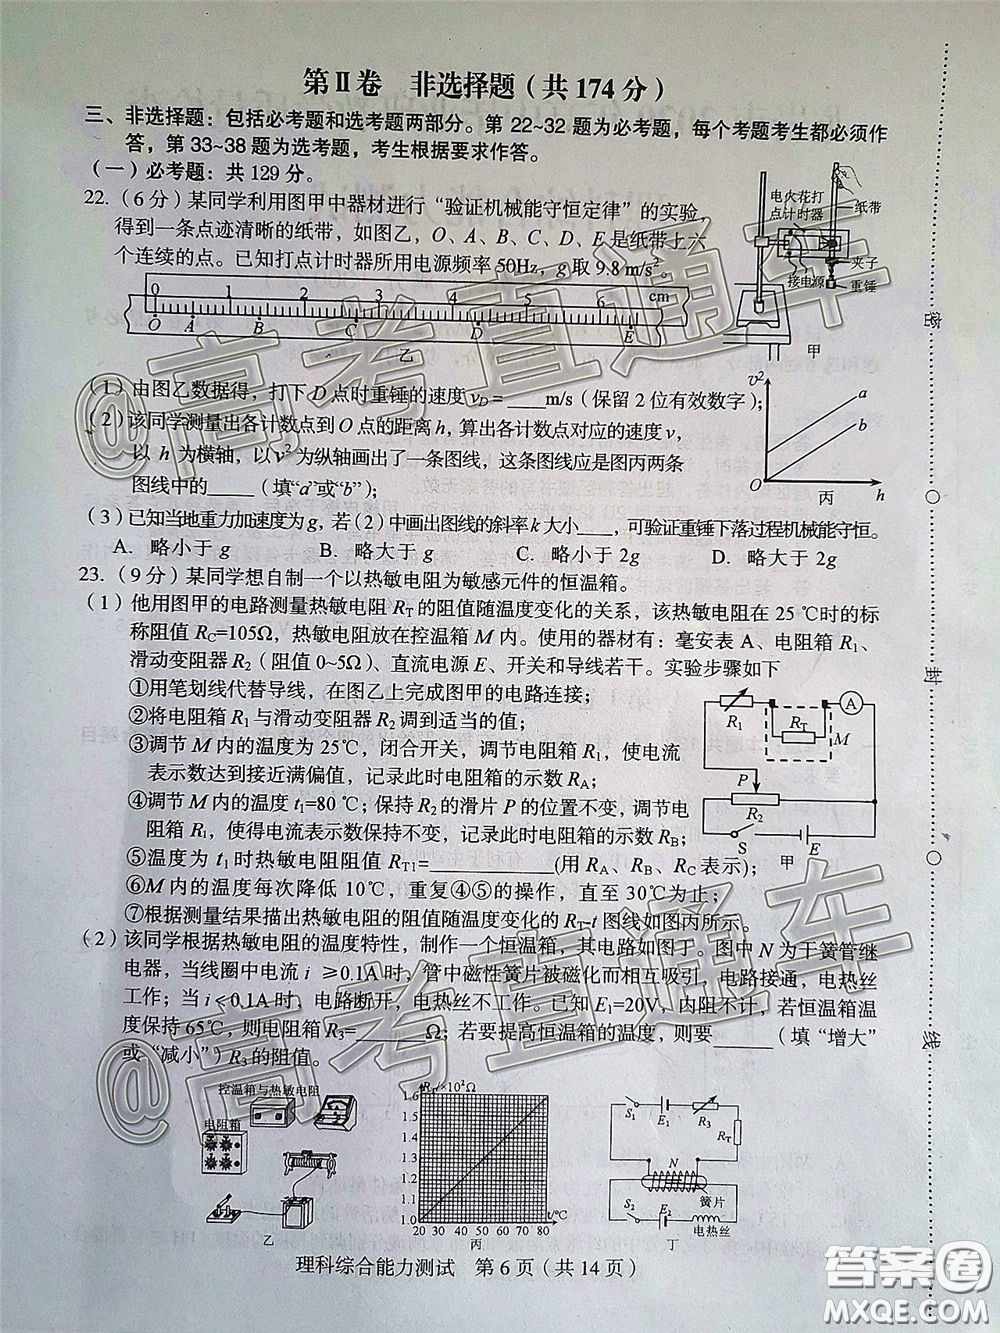 第Ⅱ卷 非选择题（共 174 分）
三、非选择题：包括必考题和选考题两部分。第 22~32 题为必考题，每个考题考生都必须作
答，第 33~38 题为选考题，考生根据要求作答。
（一）必考题：共 129 分。
22.（6 分）某同学利用图甲中器材进行“验证机械能守恒定律”的实验，
得到一条点迹清晰的纸带，如图乙，O、A、B、C、D、E 是纸带上六
个连续的点。已知打点计时器所用电源频率 50Hz，g 取 9.8 m/s²。
电火花打
点计时器
纸带
夹子
接电源
重锤
甲
0 1 2 3 4 5 6 cm
O A B C D E
乙
（1）由图乙数据得，打下 D 点时重锤的速度 vD=____m/s（保留 2 位有效数字）；
（2）该同学测量出各计数点到 O 点的距离 h，算出各计数点对应的速度 v，
以 h 为横轴，以 v² 为纵轴画出了一条图线，这条图线应是图丙两条
图线中的_____（填“a”或“b”）；
v²
a
b
O
丙
h
（3）已知当地重力加速度为 g，若（2）中画出图线的斜率 k 大小____，可验证重锤下落过程机械能守恒。
A. 略小于 g B. 略大于 g C. 略小于 2g D. 略大于 2g
23.（9 分）某同学想自制一个以热敏电阻为敏感元件的恒温箱。
（1）他用图甲的电路测量热敏电阻 RT 的阻值随温度变化的关系，该热敏电阻在 25 ℃时的标
称阻值 RC=105Ω，热敏电阻放在控温箱 M 内。使用的器材有：毫安表 A、电阻箱 R1、
滑动变阻器 R2（阻值 0~5Ω）、直流电源 E、开关和导线若干。实验步骤如下
①用笔划线代替导线，在图乙上完成图甲的电路连接；
②将电阻箱 R1 与滑动变阻器 R2 调到适当的值；
③调节 M 内的温度为 25℃，闭合开关，调节电阻箱 R1，使电流
表示数达到接近满偏值，记录此时电阻箱的示数 RA；
④调节 M 内的温度 t1=80 ℃；保持 R2 的滑片 P 的位置不变，调节电
阻箱 R1，使得电流表示数保持不变，记录此时电阻箱的示数 RB；
⑤温度为 t1 时热敏电阻阻值 RT1=__________(用 RA、RB、RC 表示)；
⑥M 内的温度每次降低 10℃，重复④⑤的操作，直至 30℃为止；
⑦根据测量结果描出热敏电阻的阻值随温度变化的 RT-t 图线如图丙所示。
R1
RT
M
A
P
R2
S
E
甲
（2）该同学根据热敏电阻的温度特性，制作一个恒温箱，其电路如图丁。图中 N 为干簧管继
电器，当线圈中电流 i ≥0.1A 时，管中磁性簧片被磁化而相互吸引，电路接通，电热丝
工作；当 i＜0.1A 时，电路断开，电热丝不工作。已知 E1=20V，内阻不计，若恒温箱温
度保持 65℃，则电阻箱 R3=_______Ω；若要提高恒温箱的温度，则要______（填“增大”
或“减小”）R3 的阻值。
控温箱与热敏电阻
电阻箱
乙
RT/×10²Ω
1.6
1.5
1.4
1.3
1.2
1.1
1.0
20 30 40 50 60 70 80
t/℃
丙
S1
E1
R3
RT
N
簧片
S2
E2
电热丝
丁
理科综合能力测试 第 6 页（共 14 页）
密
封
线
@高考直通车
@高考直通车
答案圈
MXQE.COM